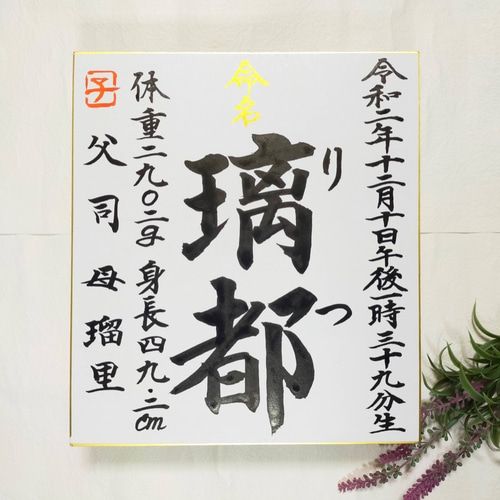 令和二年十二月十日午後一時三十九分生
命名
璃都
りつ
体重二九〇二g 身長四九.二cm
父 司 母 瑠里
子